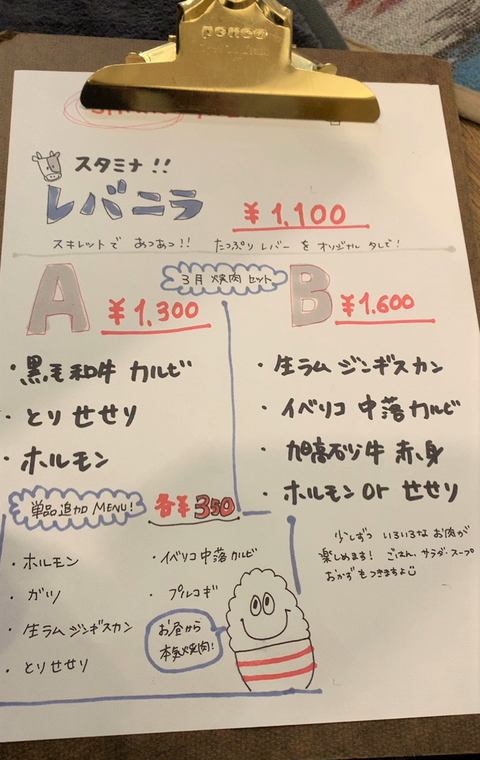 penco
スタミナ!!
レバニラ ¥1,100
スキレットで あつあつ!! たっぷり レバー を オリジナル タレで!
3月 焼肉 セット
A ¥1,300
・黒毛和牛 カルビ
・とり せせり
・ホルモン
B ¥1.600
・生ラム ジンギスカン
・イベリコ 中落カルビ
・旭高砂牛 赤身
・ホルモン or せせり
少しずつ いろいろな お肉が
楽しめます! ごはん、サラダ・スープ
おかずもつきますよ
単品追加 MENU! 各¥350
・ホルモン
・ガツ
・生ラム ジンギスカン
・とり せせり
・イベリコ 中落 カルビ
・プルコギ
お昼から
本気焼肉!